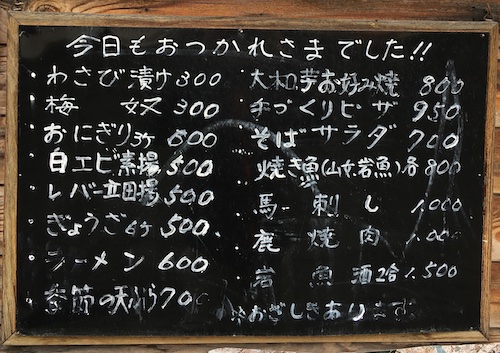 今日もおつかれさまでした!!
・わさび漬け 300
・梅 奴 300
・おにぎり3ヶ 500
・白エビ素揚 500
・レバー立田揚 500
・ぎょうざ6ヶ 500
・ラーメン 600
・季節の天ぷら 700
・大和芋お好み焼 800
・手づくりピザ 950
・そばサラダ 700
・焼き魚(山女、岩魚)各800
・馬刺し 1,000
・鹿焼肉 1,000
・岩魚酒2合 1,500
※おざしきあります